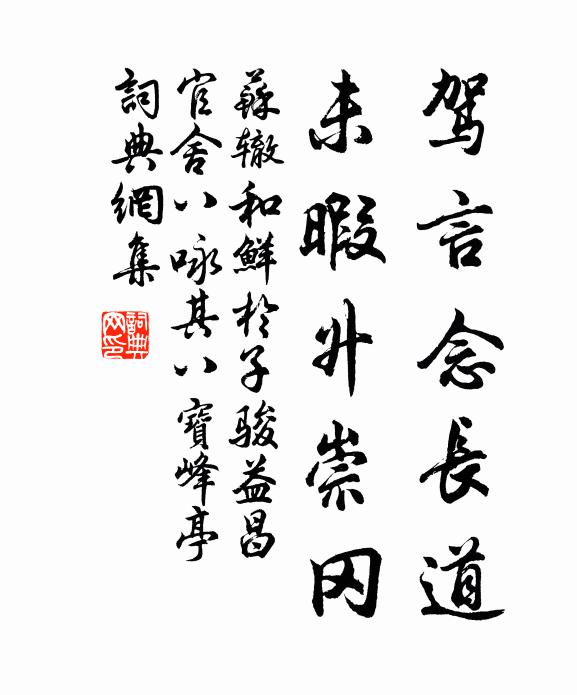 驾言念長道
未暇升崇冈
蘇辙和鮮於子骏益昌
官舍八咏其八寶峰亭
詞典網集
詞典网印